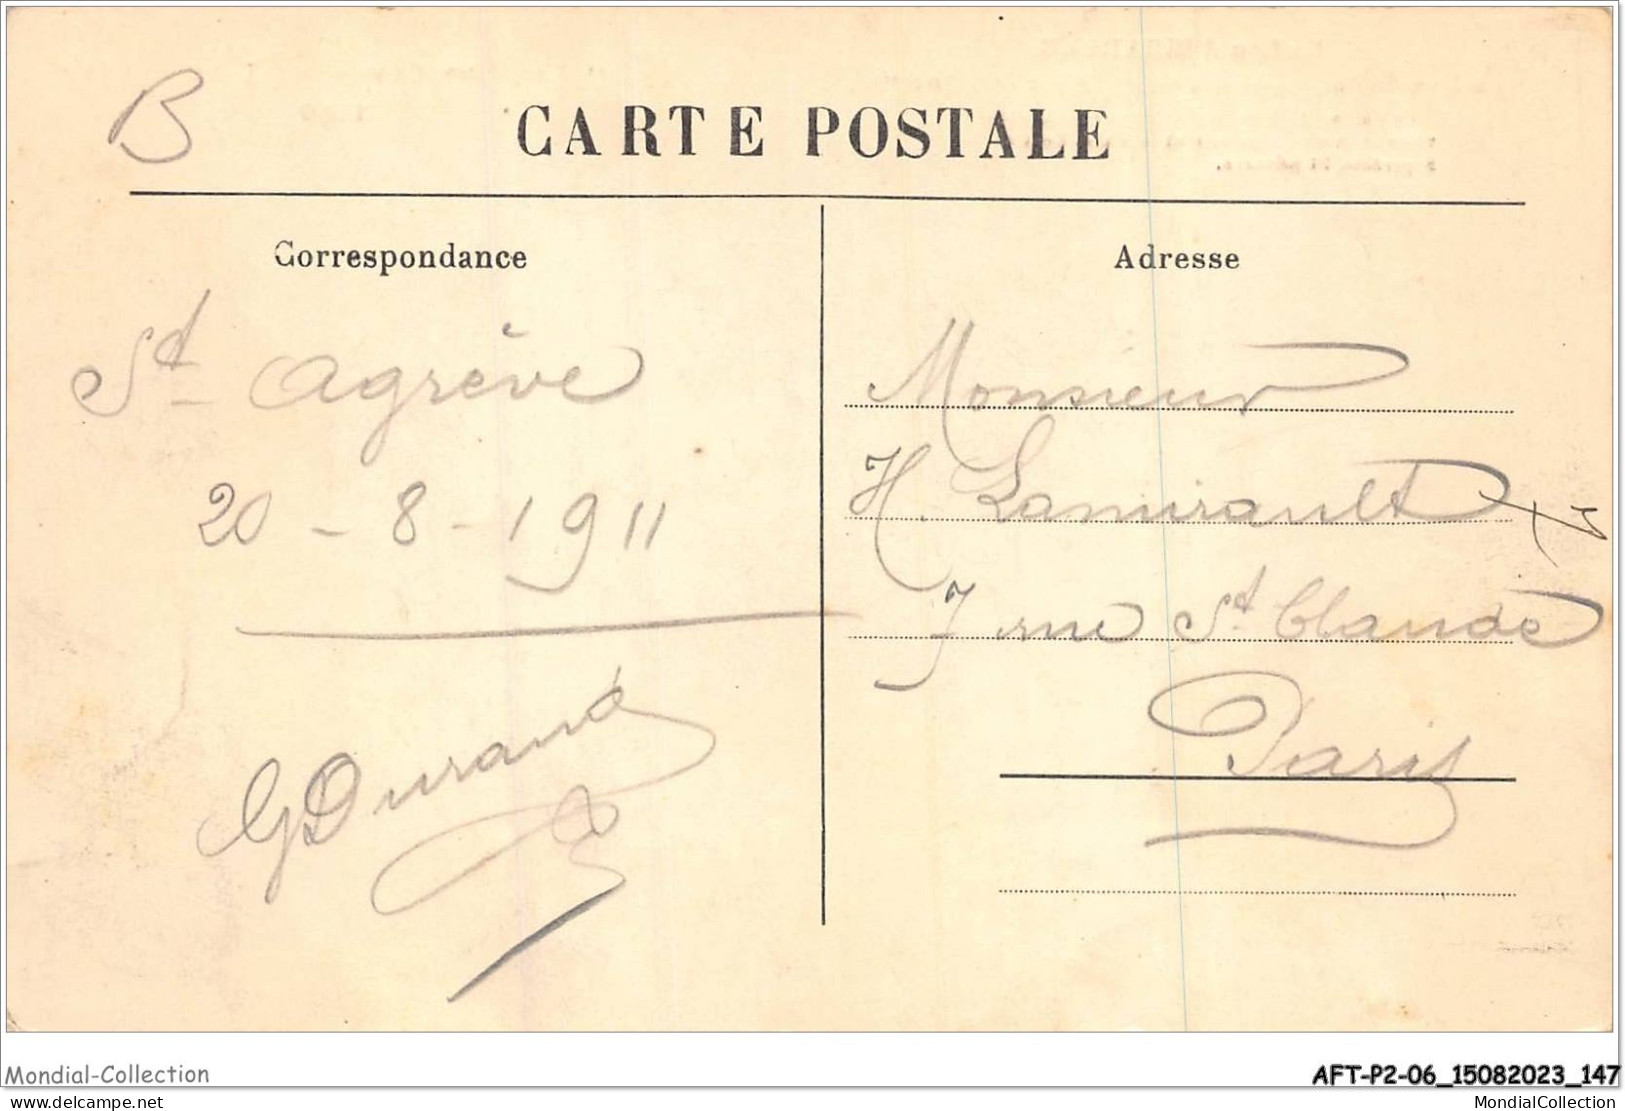 B
CARTE POSTALE
Correspondance
St Agrève
20 - 8 - 1911
G Durand
Adresse
Monsieur
H. Lamirault
7 rue St Claude
Paris
Mondial-Collection
AFT-P2-06_15082023_147
www.delcampe.net
MondialCollection